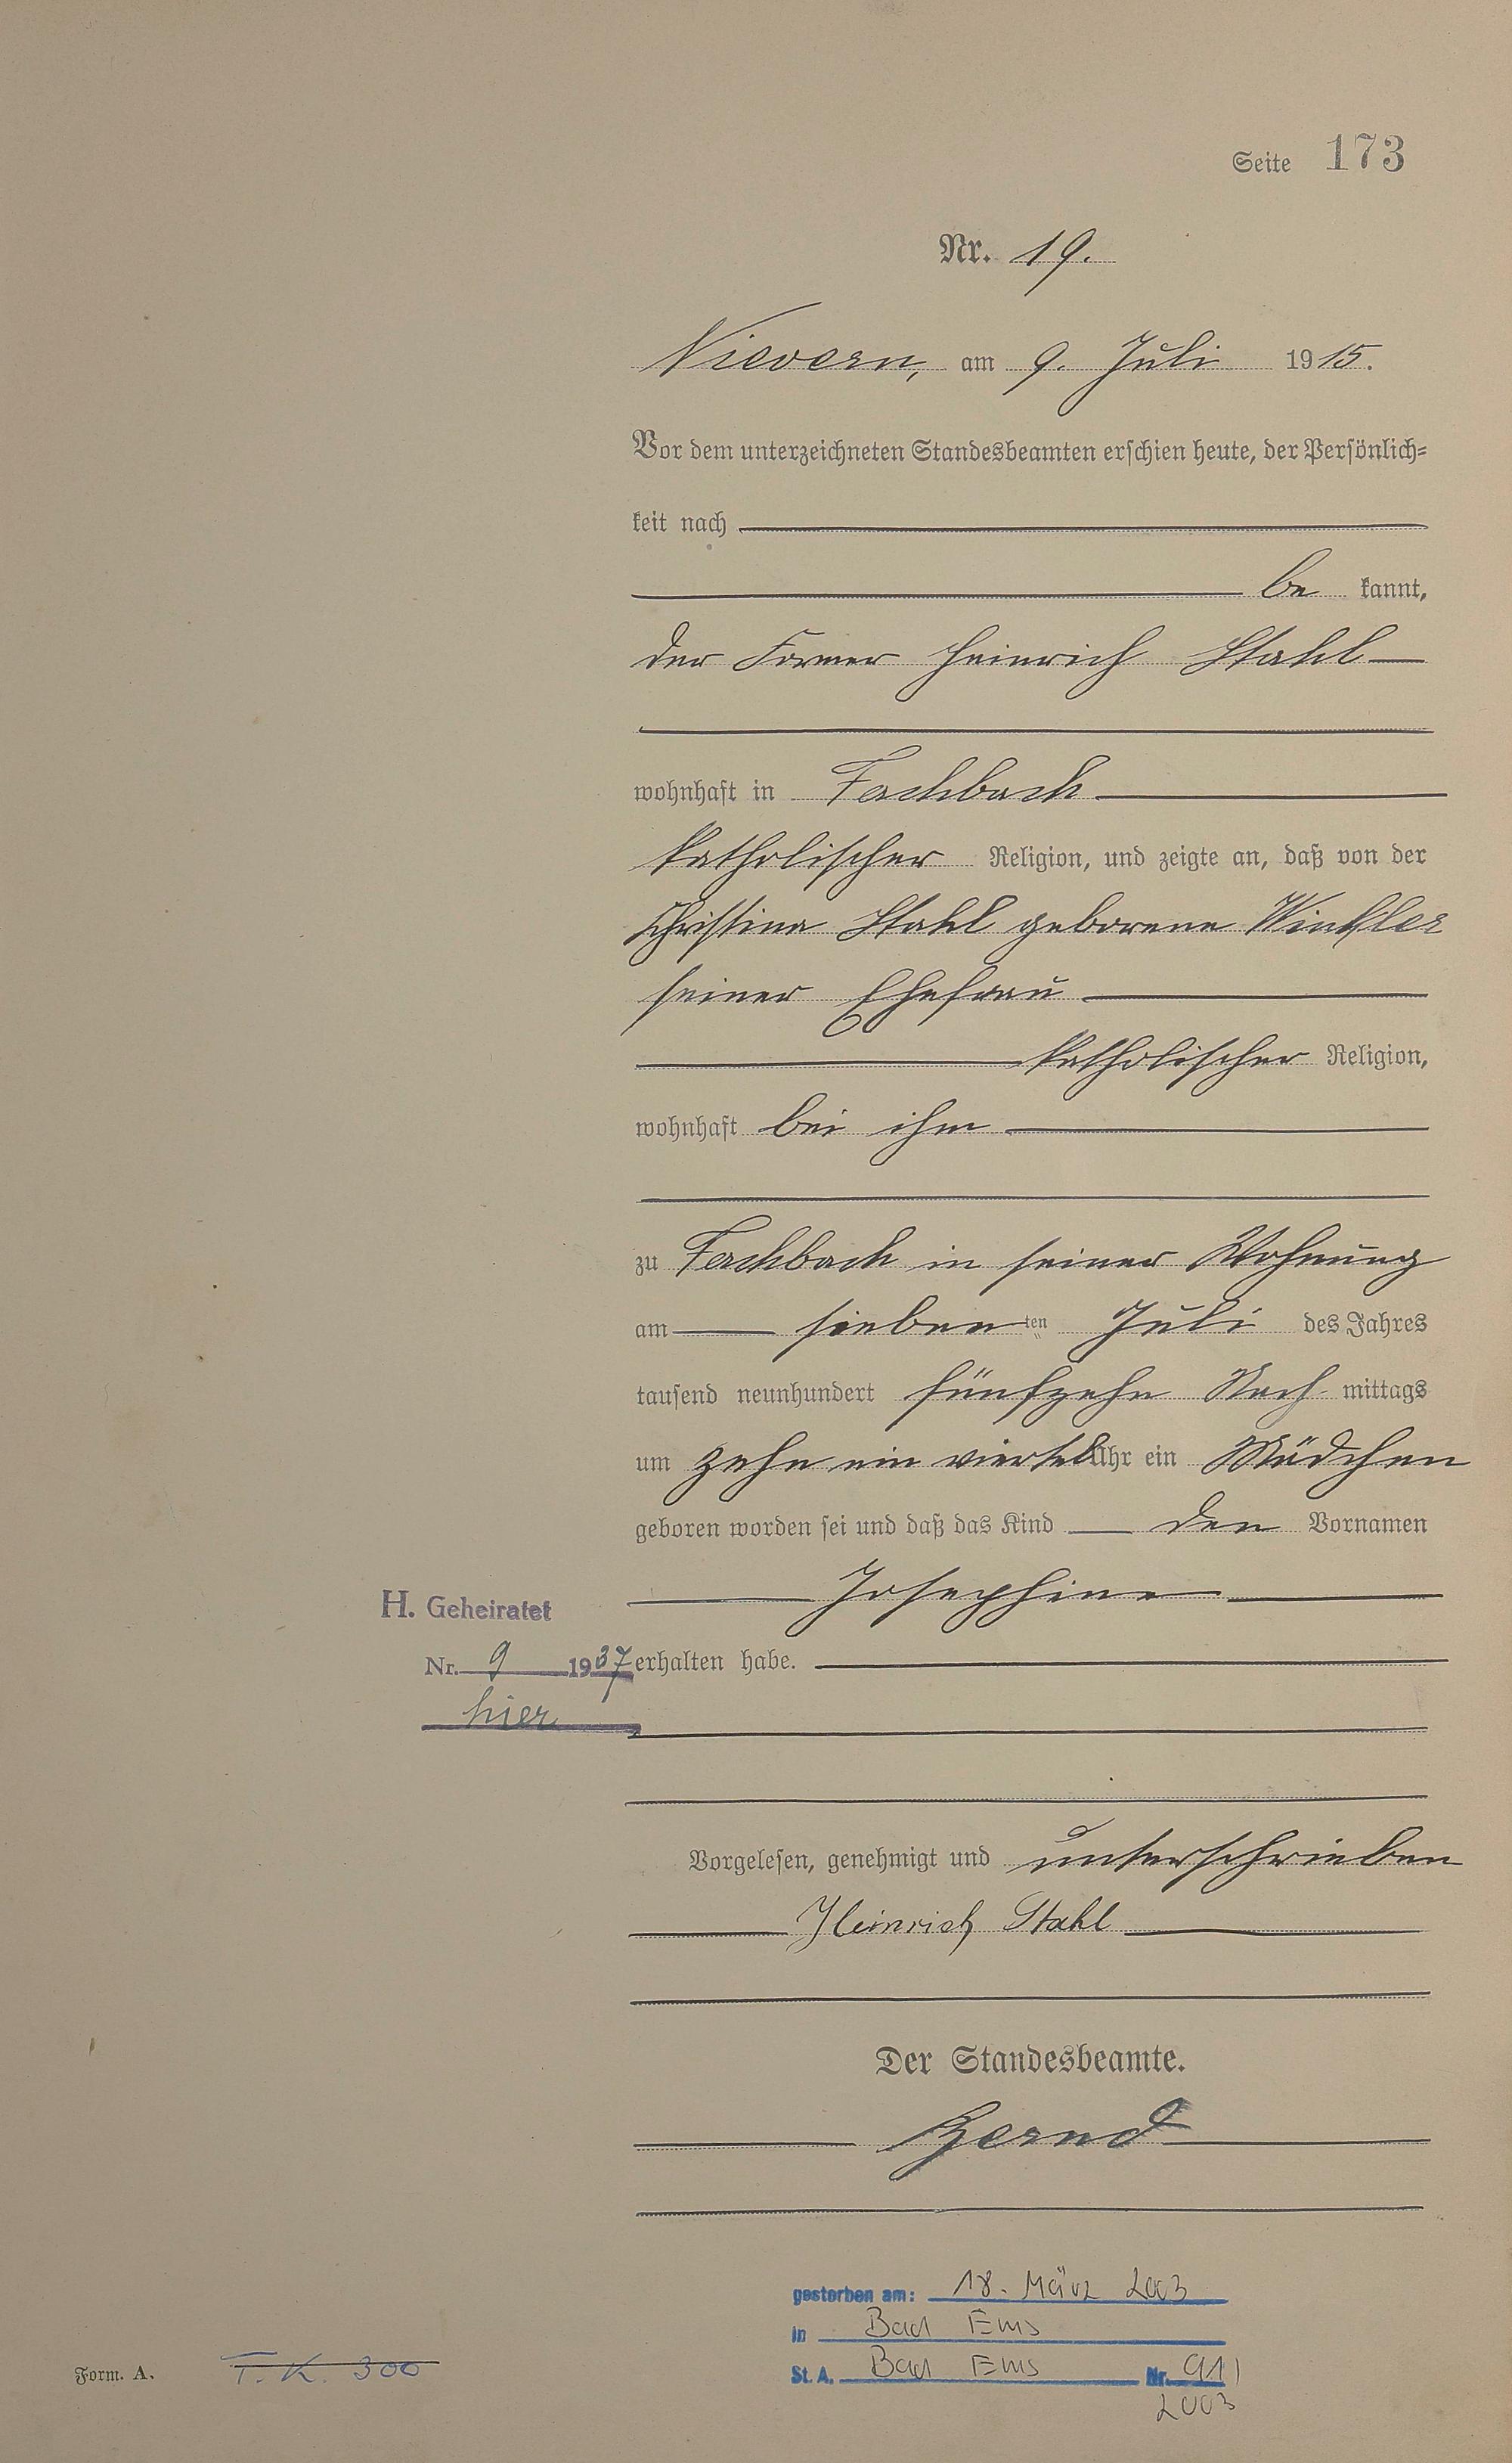 Seite 173
Nr. 19.
Nievern, am 9. Juli 1915.
Vor dem unterzeichneten Standesbeamten erschien heute, der Persönlich=
keit nach
be kannt,
der Former Heinrich Stahl
wohnhaft in Fachbach
katholischer Religion, und zeigte an, daß von der
Christina Stahl geborene Winkler
seiner Ehefrau
katholischer Religion,
wohnhaft bei ihm
zu Fachbach in seiner Wohnung
am siebenten Juli des Jahres
tausend neunhundert fünfzehn Nach mittags
um zehn ein viertel Uhr ein Mädchen
geboren worden sei und daß das Kind den Vornamen
Josephine
H. Geheiratet
Nr. 9 1937 erhalten habe.
hier
Vorgelesen, genehmigt und unterschrieben
Heinrich Stahl
Der Standesbeamte.
gestorben am: 18. März 2003
in Bad Ems
St. A. Bad Ems Nr. 91/
2003
Form. A. T. K. 300